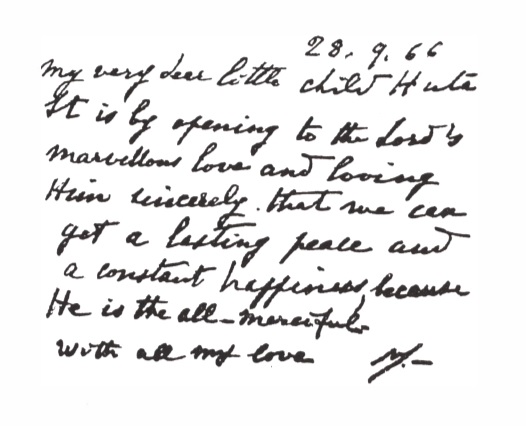 28.9.66
My very dear little child Huta
It is by opening to the Lord's
marvellous love and loving
Him sincerely that we can
get a lasting peace and
a constant happiness, because
He is the all-merciful.
With all my love M.-